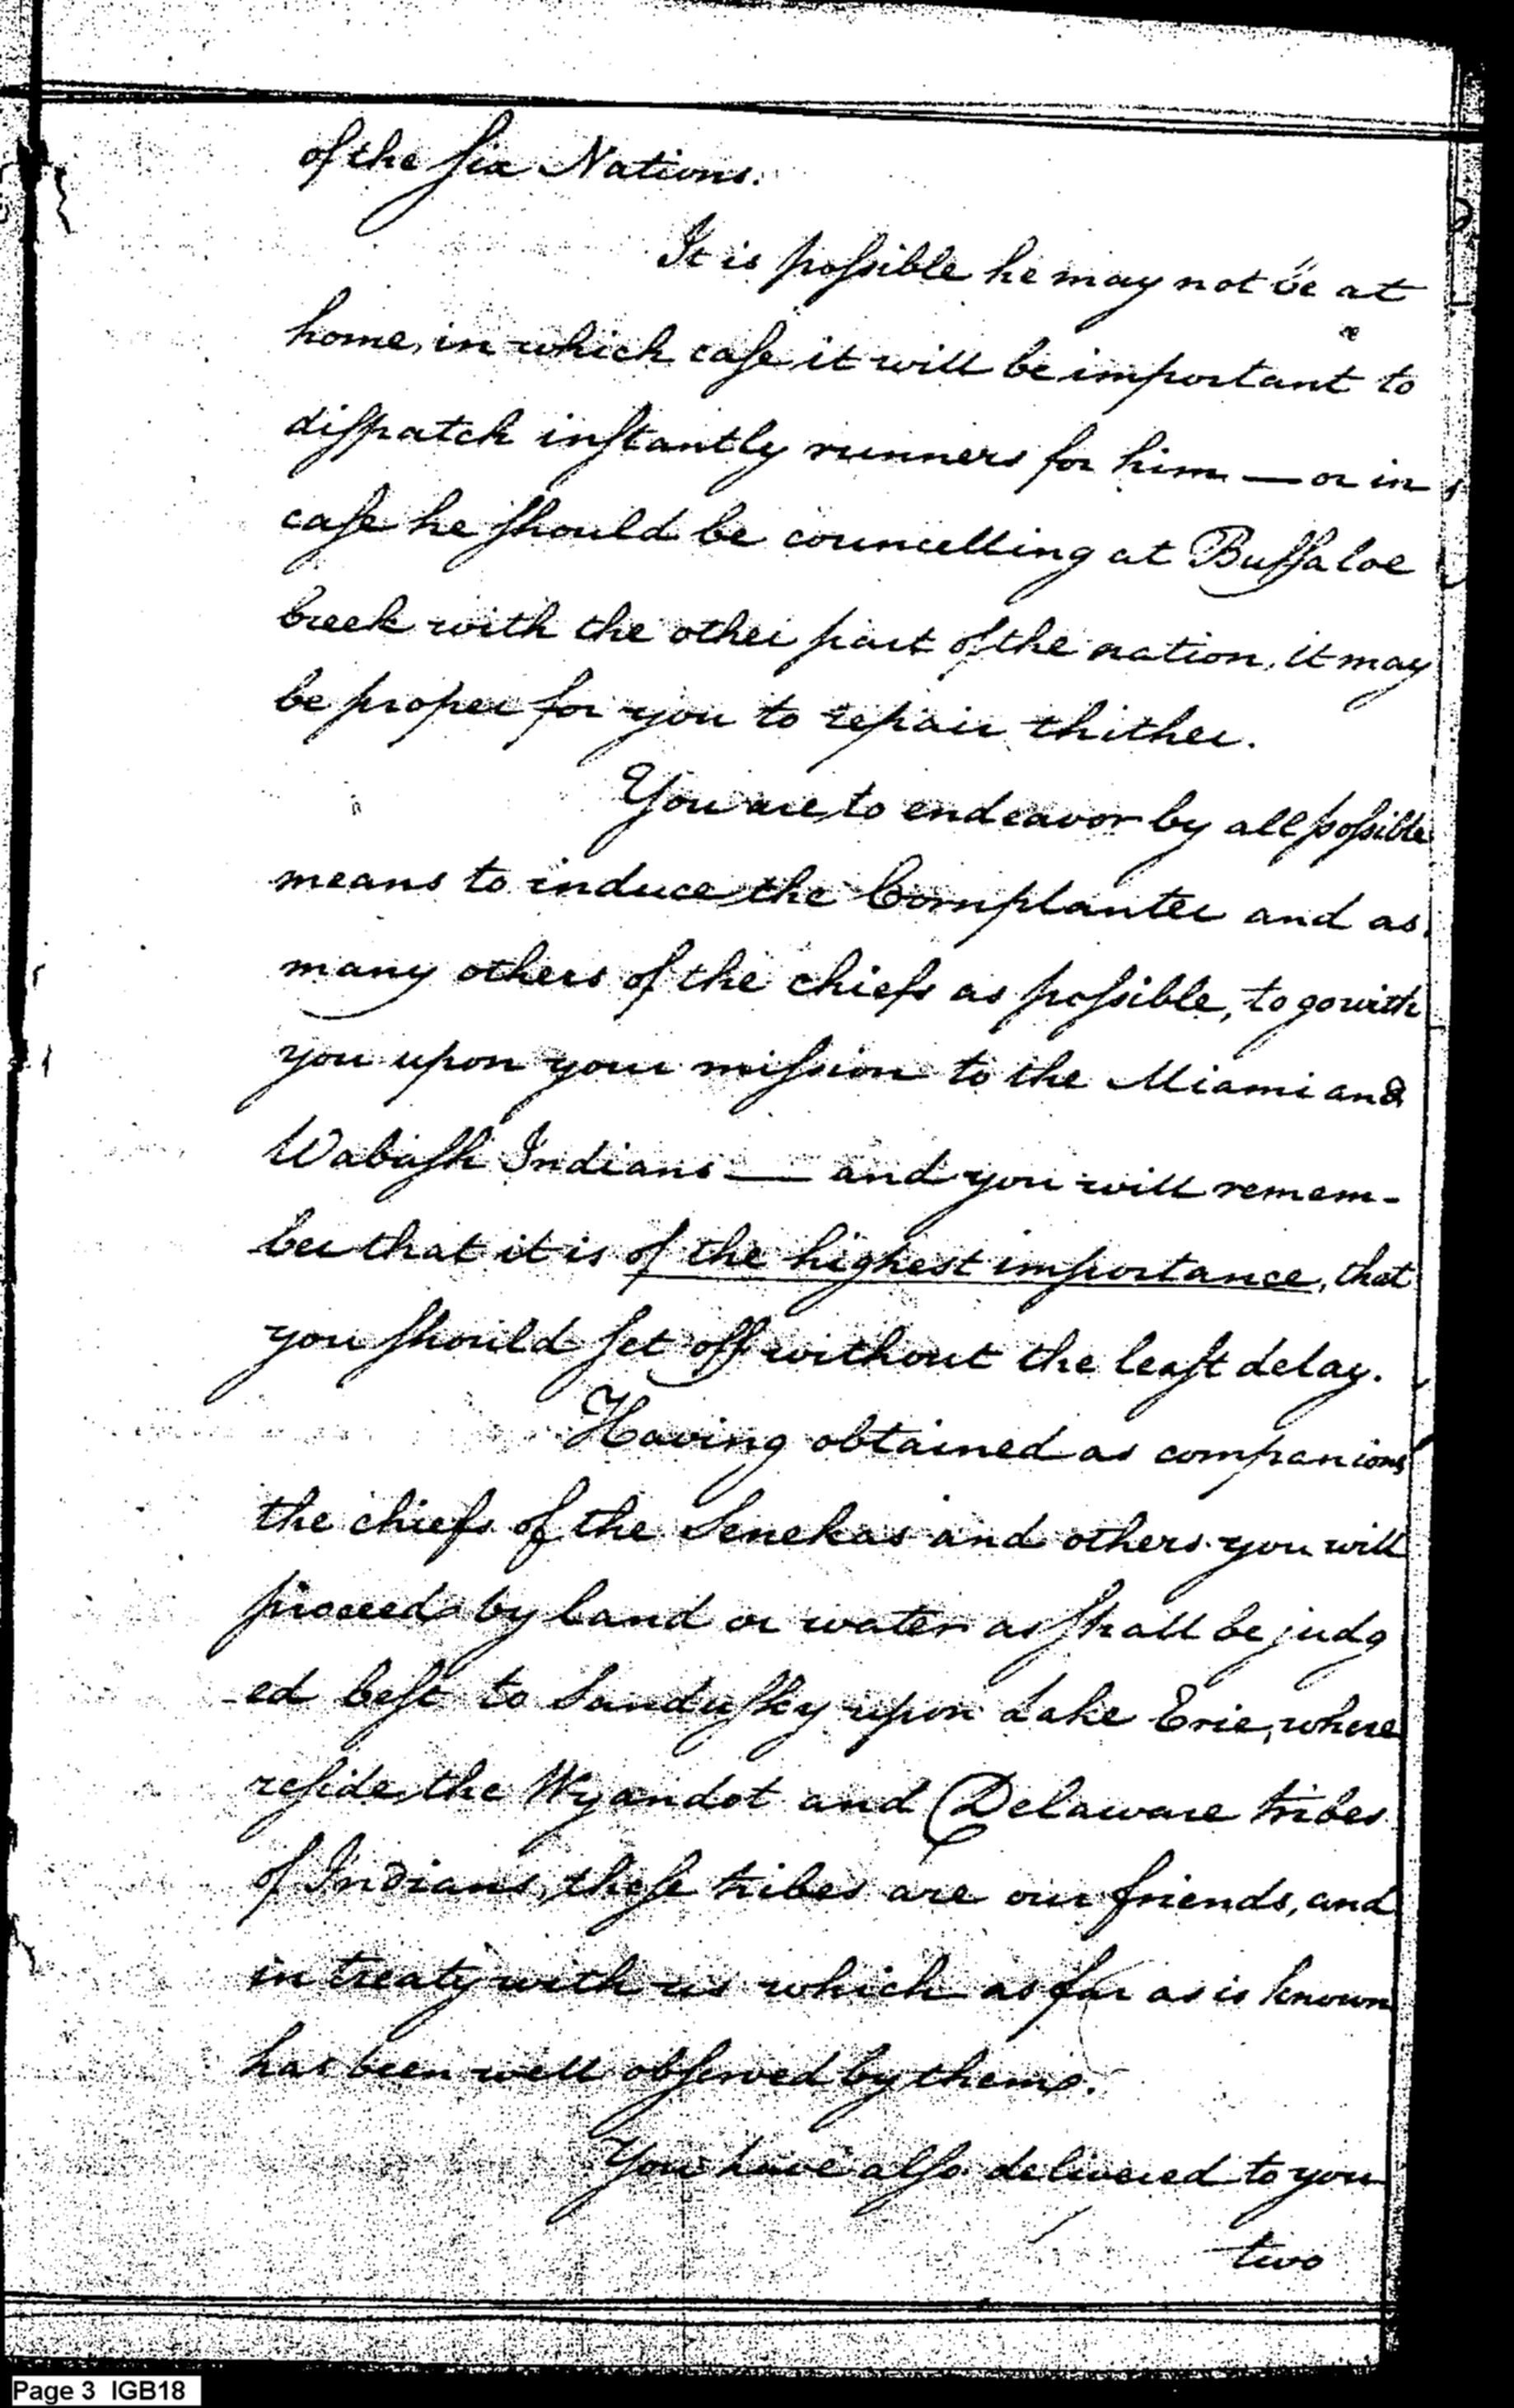 of the six Nations.
It is possible he may not be at
home, in which case it will be important to
dispatch instantly runners for him — or in
case he should be councelling at Buffaloe
Creek with the other part of the nation, it may
be proper for you to repair thither.
You are to endeavor by all possible
means to induce the Cornplanter and as
many others of the chiefs as possible, to go with
you upon your mission to the Miami and
Wabash Indians — and you will remem-
ber that it is of the highest importance, that
you should set off without the least delay.
Having obtained as companions
the chiefs of the Senekas and others you will
proceed by land or water as shall be judg
-ed best to Sandusky upon Lake Erie, where
reside the Wyandot and Delaware tribes
of Indians, these tribes are our friends, and
in treaty with us which as far as is known
has been well observed by them.
You have also delivered to you
two
Page 3 IGB18